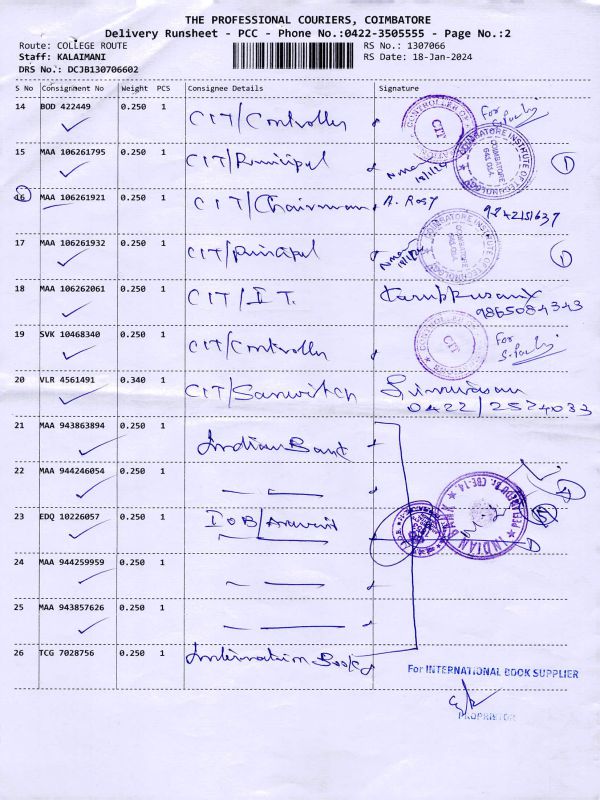 THE PROFESSIONAL COURIERS, COIMBATORE
Delivery Runsheet - PCC - Phone No.:0422-3505555 - Page No.:2
Route: COLLEGE ROUTE RS No.: 1307066
Staff: KALAIMANI RS Date: 18-Jan-2024
DRS No.: DCJB130706602
S No Consignment No Weight PCS Consignee Details Signature
14 BOD 422449 0.250 1 CIT/Controller For
CONTROLLER OF CIT
15 MAA 106261795 0.250 1 CIT/Principal 18/1/24 1
COIMBATORE INSTITUTE OF TECHNOLOGY COIMBATORE 641 014
16 MAA 106261921 0.250 1 CIT/Chairman A. Rosy
9842151637
17 MAA 106261932 0.250 1 CIT/Principal 18/1/24 1
COIMBATORE INSTITUTE OF TECHNOLOGY COIMBATORE 641 014
18 MAA 106262061 0.250 1 CIT/I.T.
9865084343
19 SVK 10468340 0.250 1 CIT/Controller For
CONTROLLER OF CIT
20 VLR 4561491 0.340 1 CIT/Sanwitch Srinivasan
0422/2574033
21 MAA 943863894 0.250 1 Indian Bank
22 MAA 944246054 0.250 1
23 EDQ 10226057 0.250 1 IOB/
INDIAN BANK CBE-14
24 MAA 944259959 0.250 1
25 MAA 943857626 0.250 1
26 TCG 7028756 0.250 1 Internation Book
For INTERNATIONAL BOOK SUPPLIER
PROPRIETOR